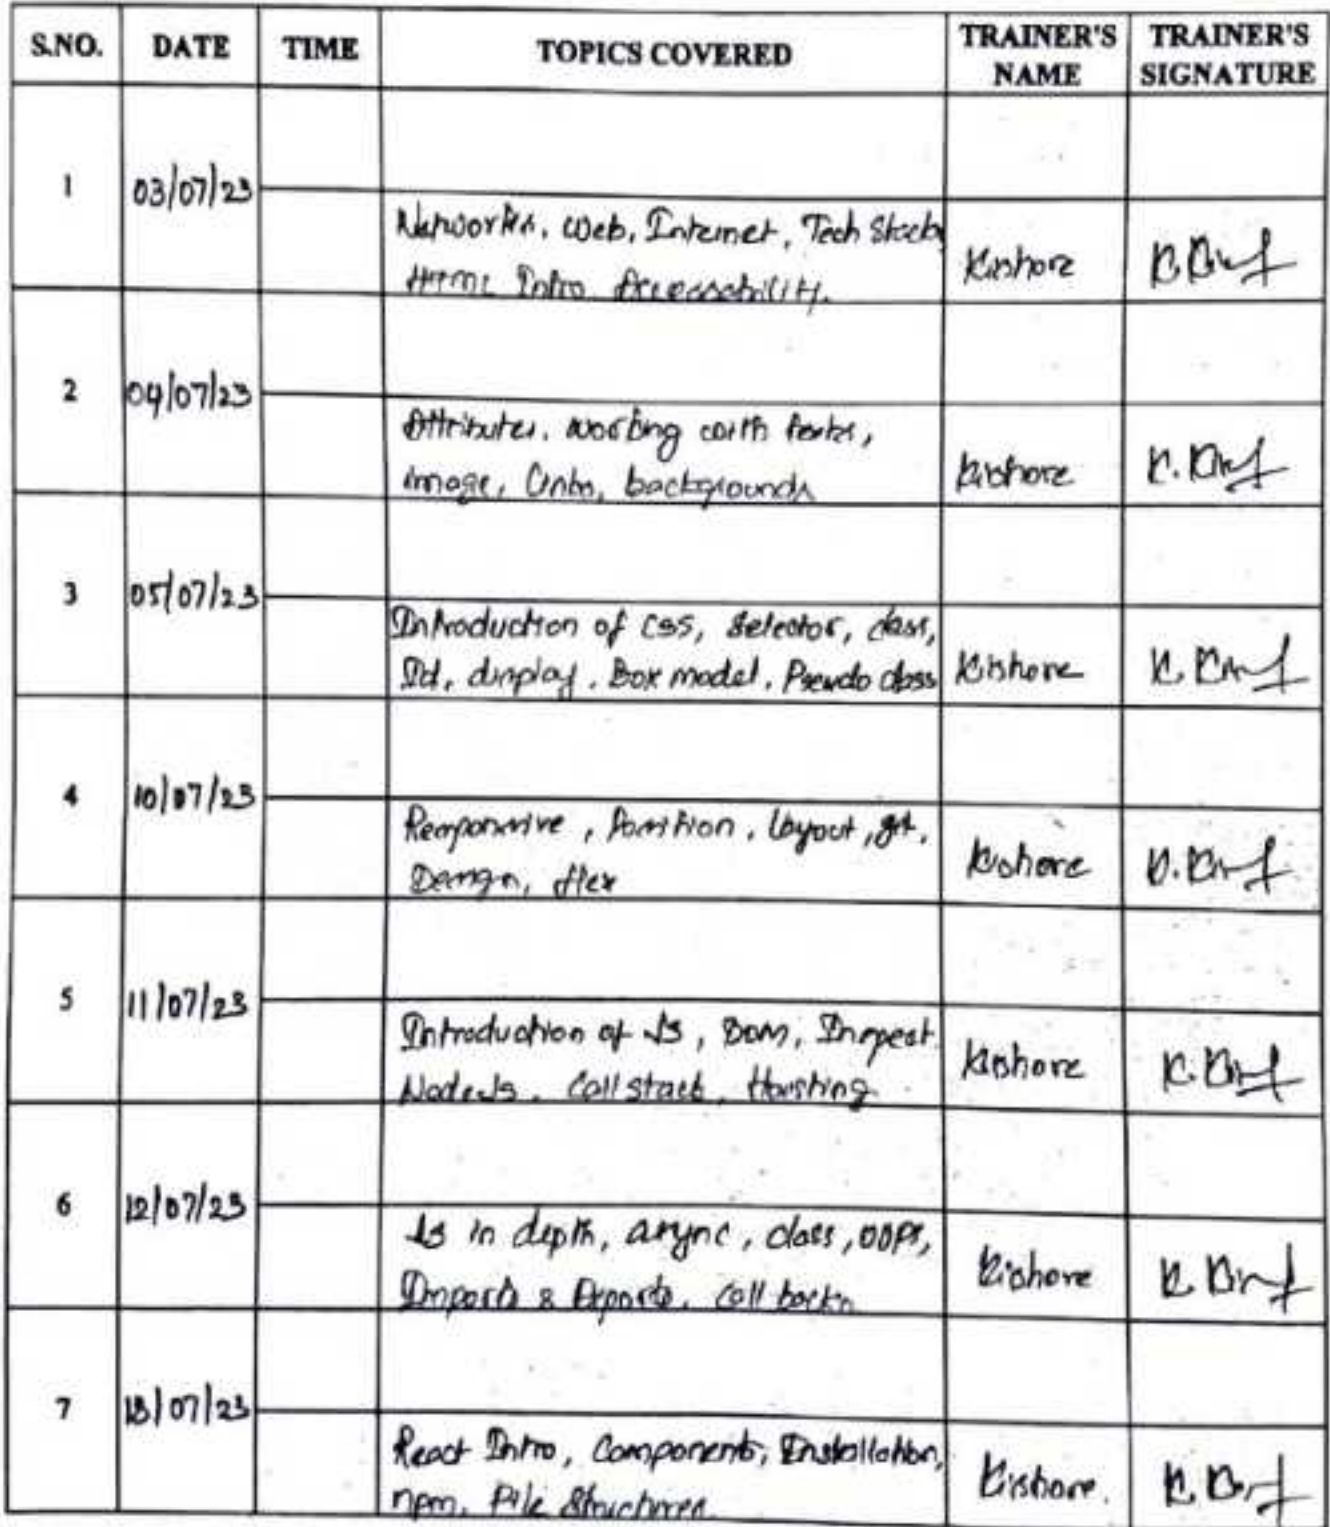 S.NO. DATE TIME TOPICS COVERED TRAINER'S NAME TRAINER'S SIGNATURE
1 03/07/23
Networks, Web, Internet, Tech Stack,
HTML Intro Accessability.
Kishore
2 04/07/23
Attributes, Working with fonts,
image, links, backgrounds
Kishore
3 05/07/23
Introduction of CSS, Selector, class,
Id, display, Box model, Pseudo class
Kishore
4 10/07/23
Responsive, Position, Layout, git,
Design, flex
Kishore
5 11/07/23
Introduction of JS, DOM, Inspect
NodeJs, Call stack, Hoisting
Kishore
6 12/07/23
Js in depth, async, class, OOPs,
Imports & Exports, Call backs
Kishore
7 13/07/23
React Intro, Components, Installation,
npm, File Structures
Kishore.